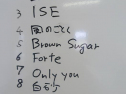 3 ISE
4 風のごとく
5 Brown Sugar
6 Forte
7 Only you
8